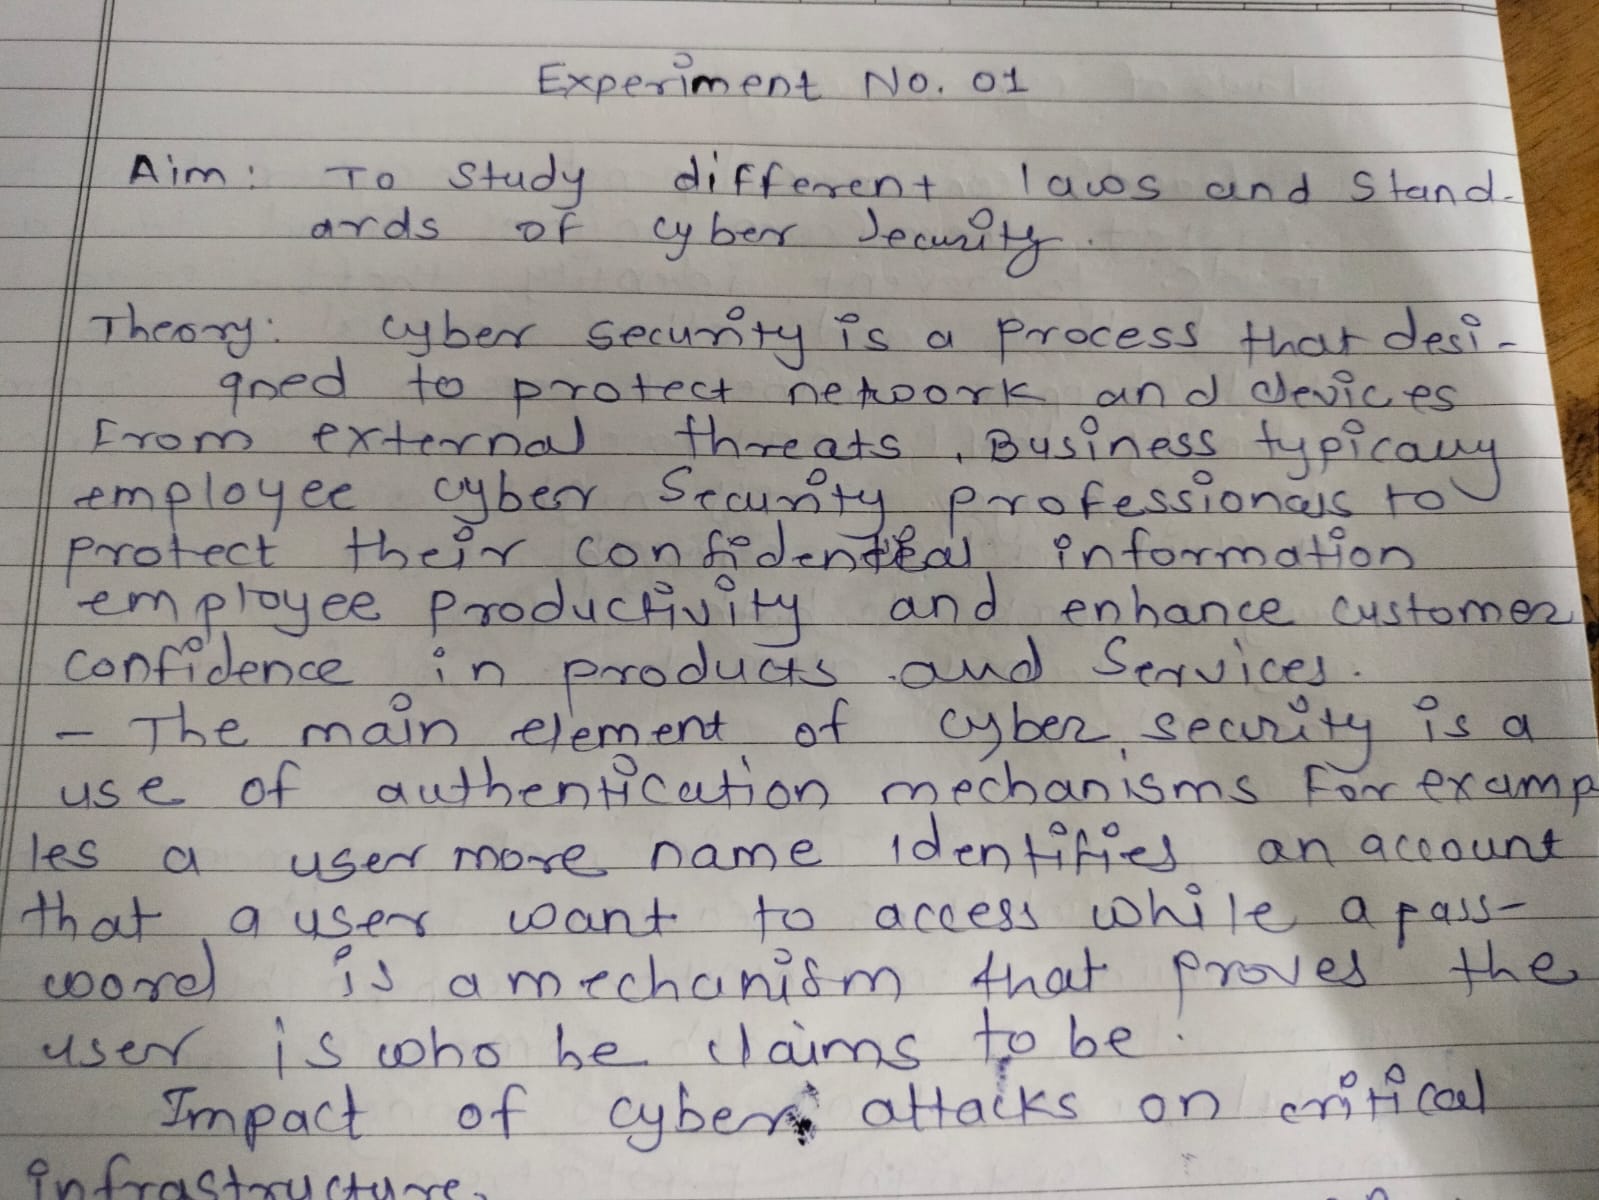 Experiment No. 01
Aim: To study different laws and Stand-
ards of cyber security.
Theory: cyber security is a process that desi-
gned to protect network and devices
from external threats. Business typically
employee cyber security professionals to
protect their confidential information
employee productivity and enhance customer
confidence in products and services.
- The main element of cyber security is a
use of authentication mechanisms for examp
les a user more name identifies an account
that a user want to access while a pass-
word is a mechanism that proves the
user is who he claims to be.
Impact of cyber attacks on critical
infrastructure.